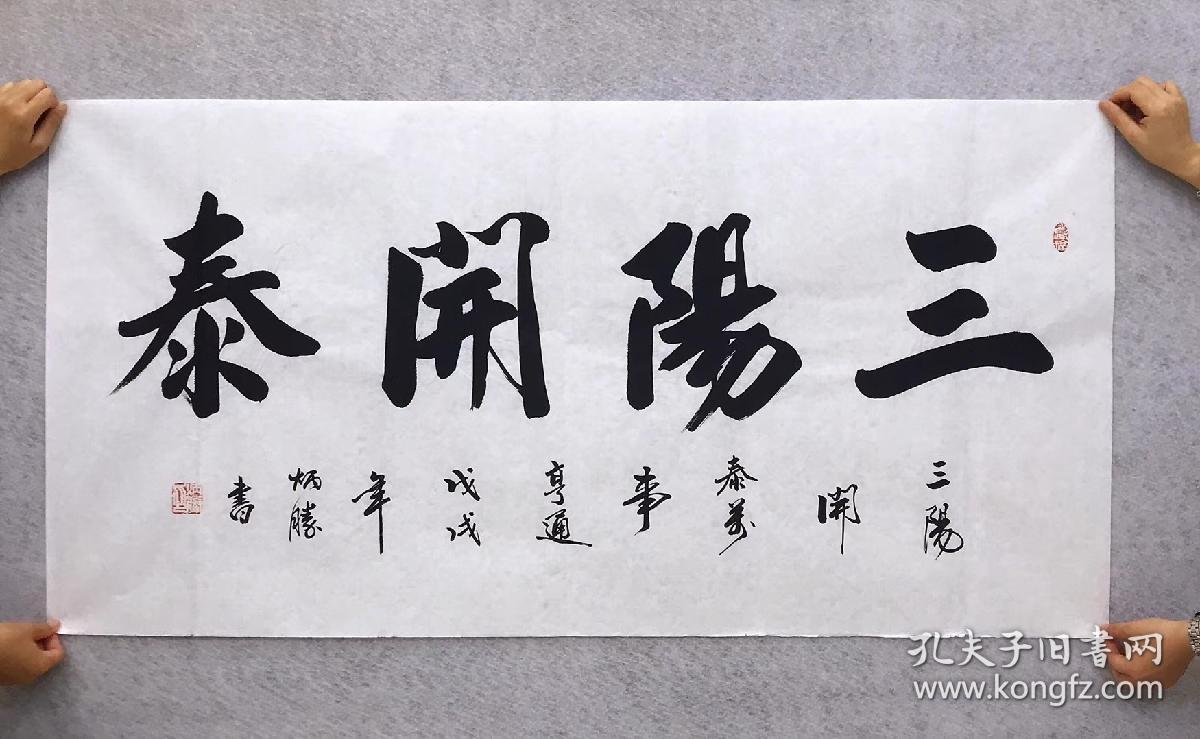 三陽開泰
三陽
開
泰萬
事
亨通
戊戌
年
炳勝
書
孔夫子旧書网
www.kongfz.com